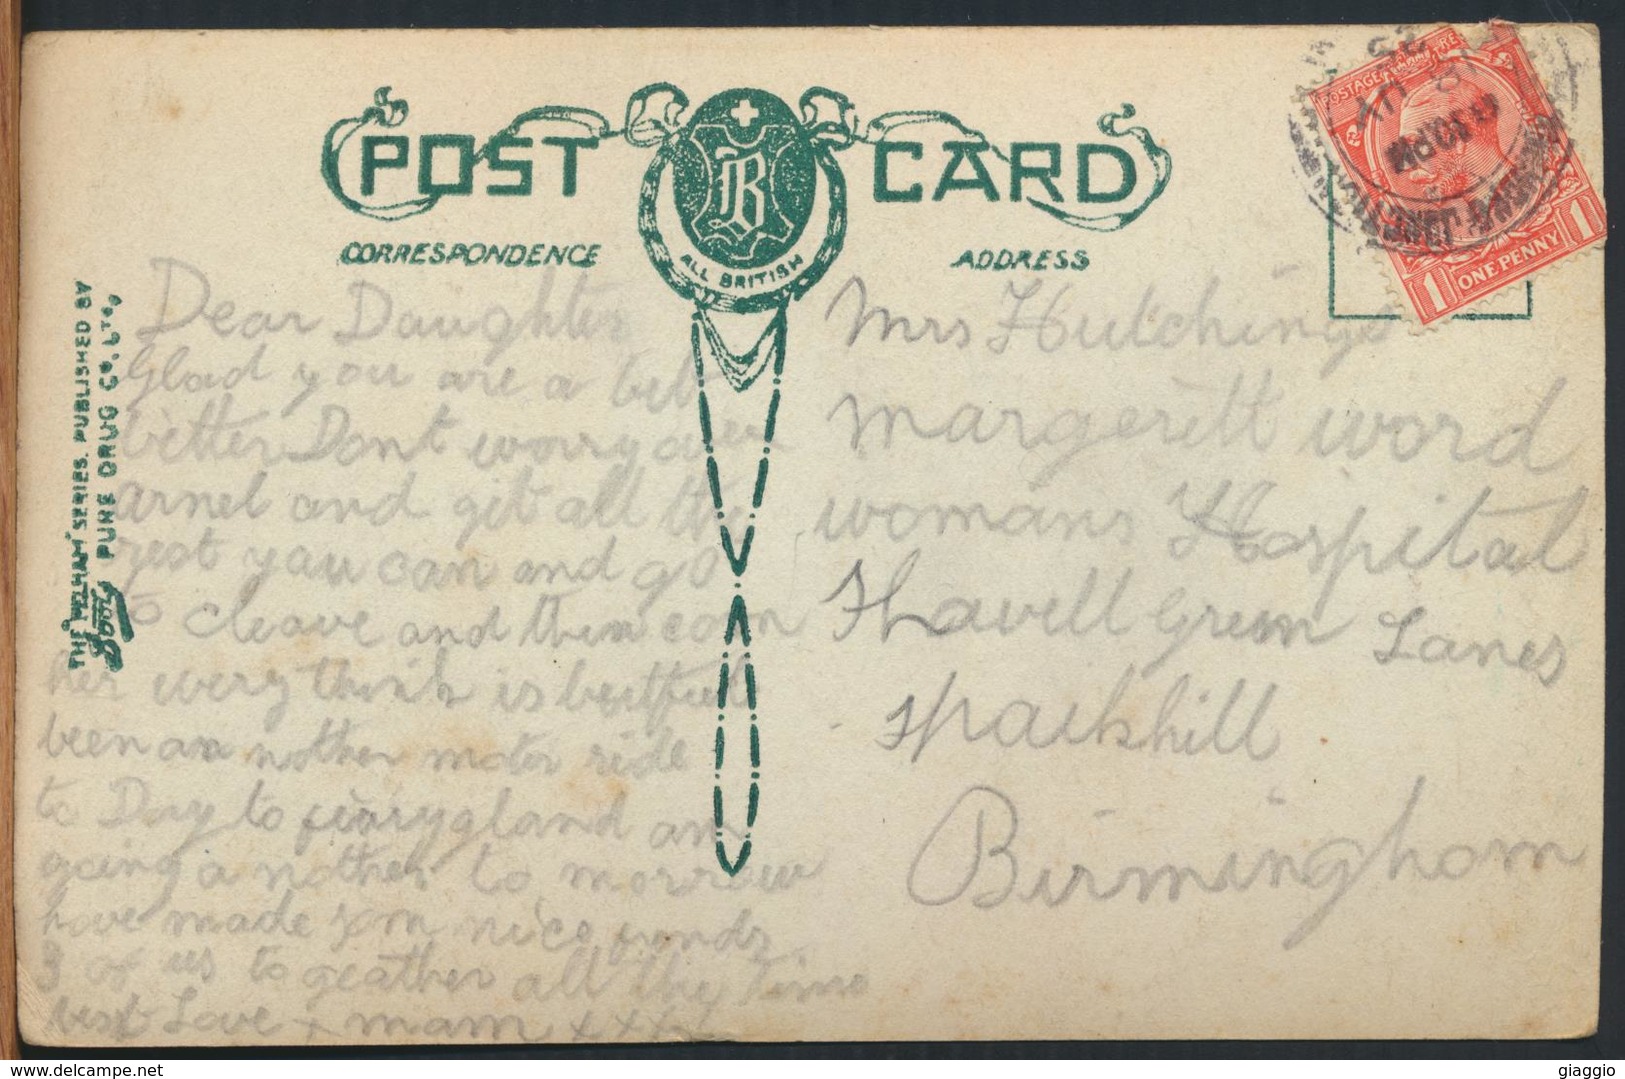 POST CARD
B
ALL BRITISH
CORRESPONDENCE
ADDRESS
THE PELHAM SERIES. PUBLISHED BY
Boots PURE DRUG Co. LTD.
POSTAGE
1 ONE PENNY 1
Dear Daughter
Glad you are a bit
better Dont worry over
arnel and git all the
rest you can and go
to cleave and then com
her wery think is beutful
been an nother motor ride
to Day to finnygland am
going a nother to morrow
have made som nice frends
3 of us to geather all the time
best Love x mam xxxx
Mrs Hutchings
margerett word
womans Hospital
Shawell Green Lanes
sparkhill
Birmingham
giaggio